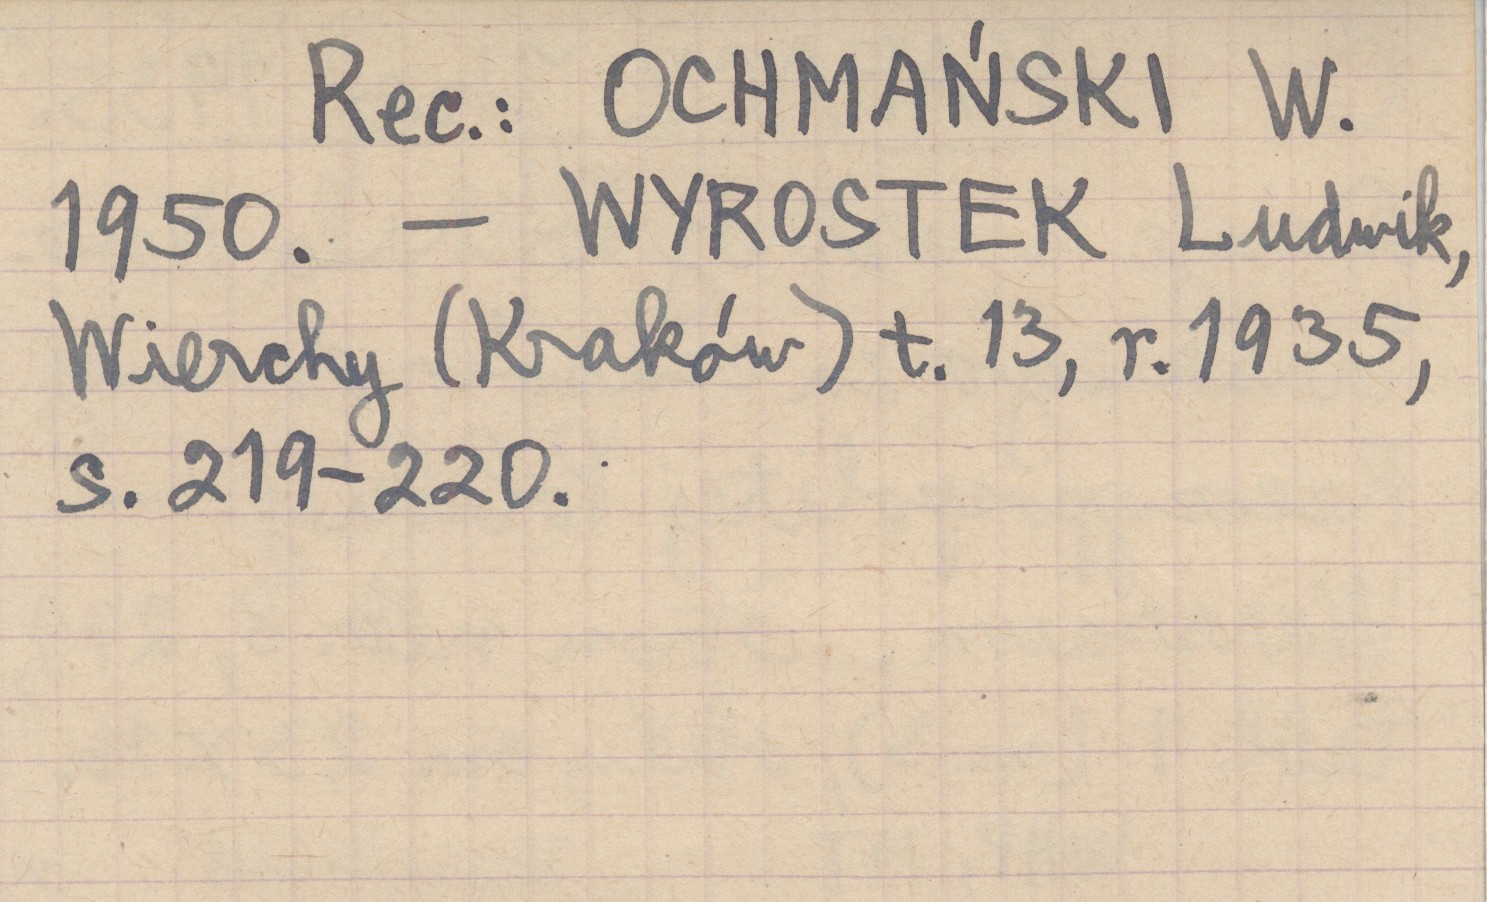 Rec.: OCHMAŃSKI W.
1950. — WYROSTEK Ludwik,
Wierchy (Kraków) t. 13, r. 1935,
s. 219-220.